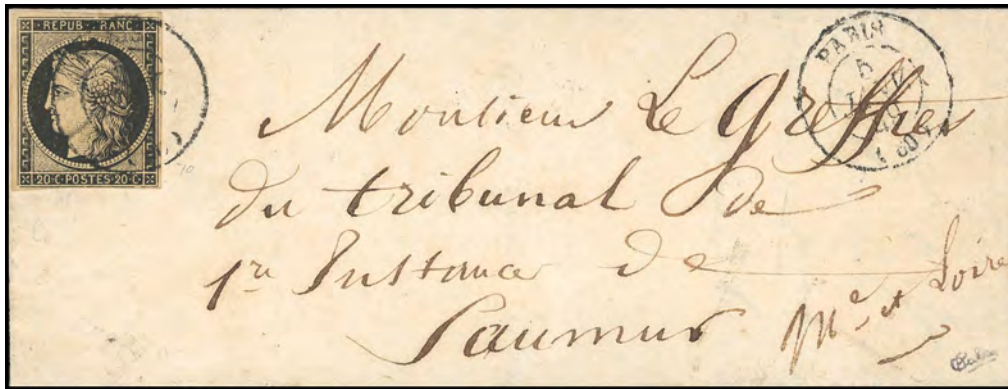 REPUB FRANC
20·C·POSTES·20·C
PARIS
5
JANV
49
Monsieur Le greffier
du tribunal de
1re Instance de
Saumur
Me et Loire